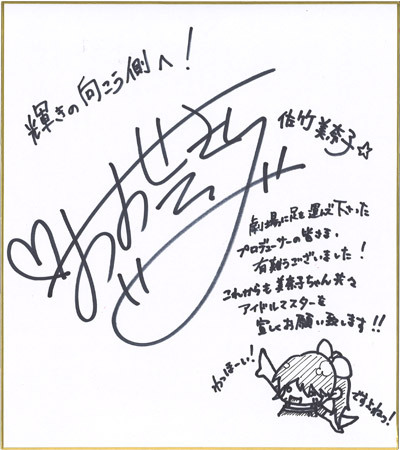 輝きの向こう側へ！
佐竹美奈子☆
劇場に足を運んで下さった
プロデューサーの皆さま、
有難うございました！
これからも美奈子ちゃん共々
アイドルマスターを
宜しくお願い致します!!
わっほーい！
ですよねっ！